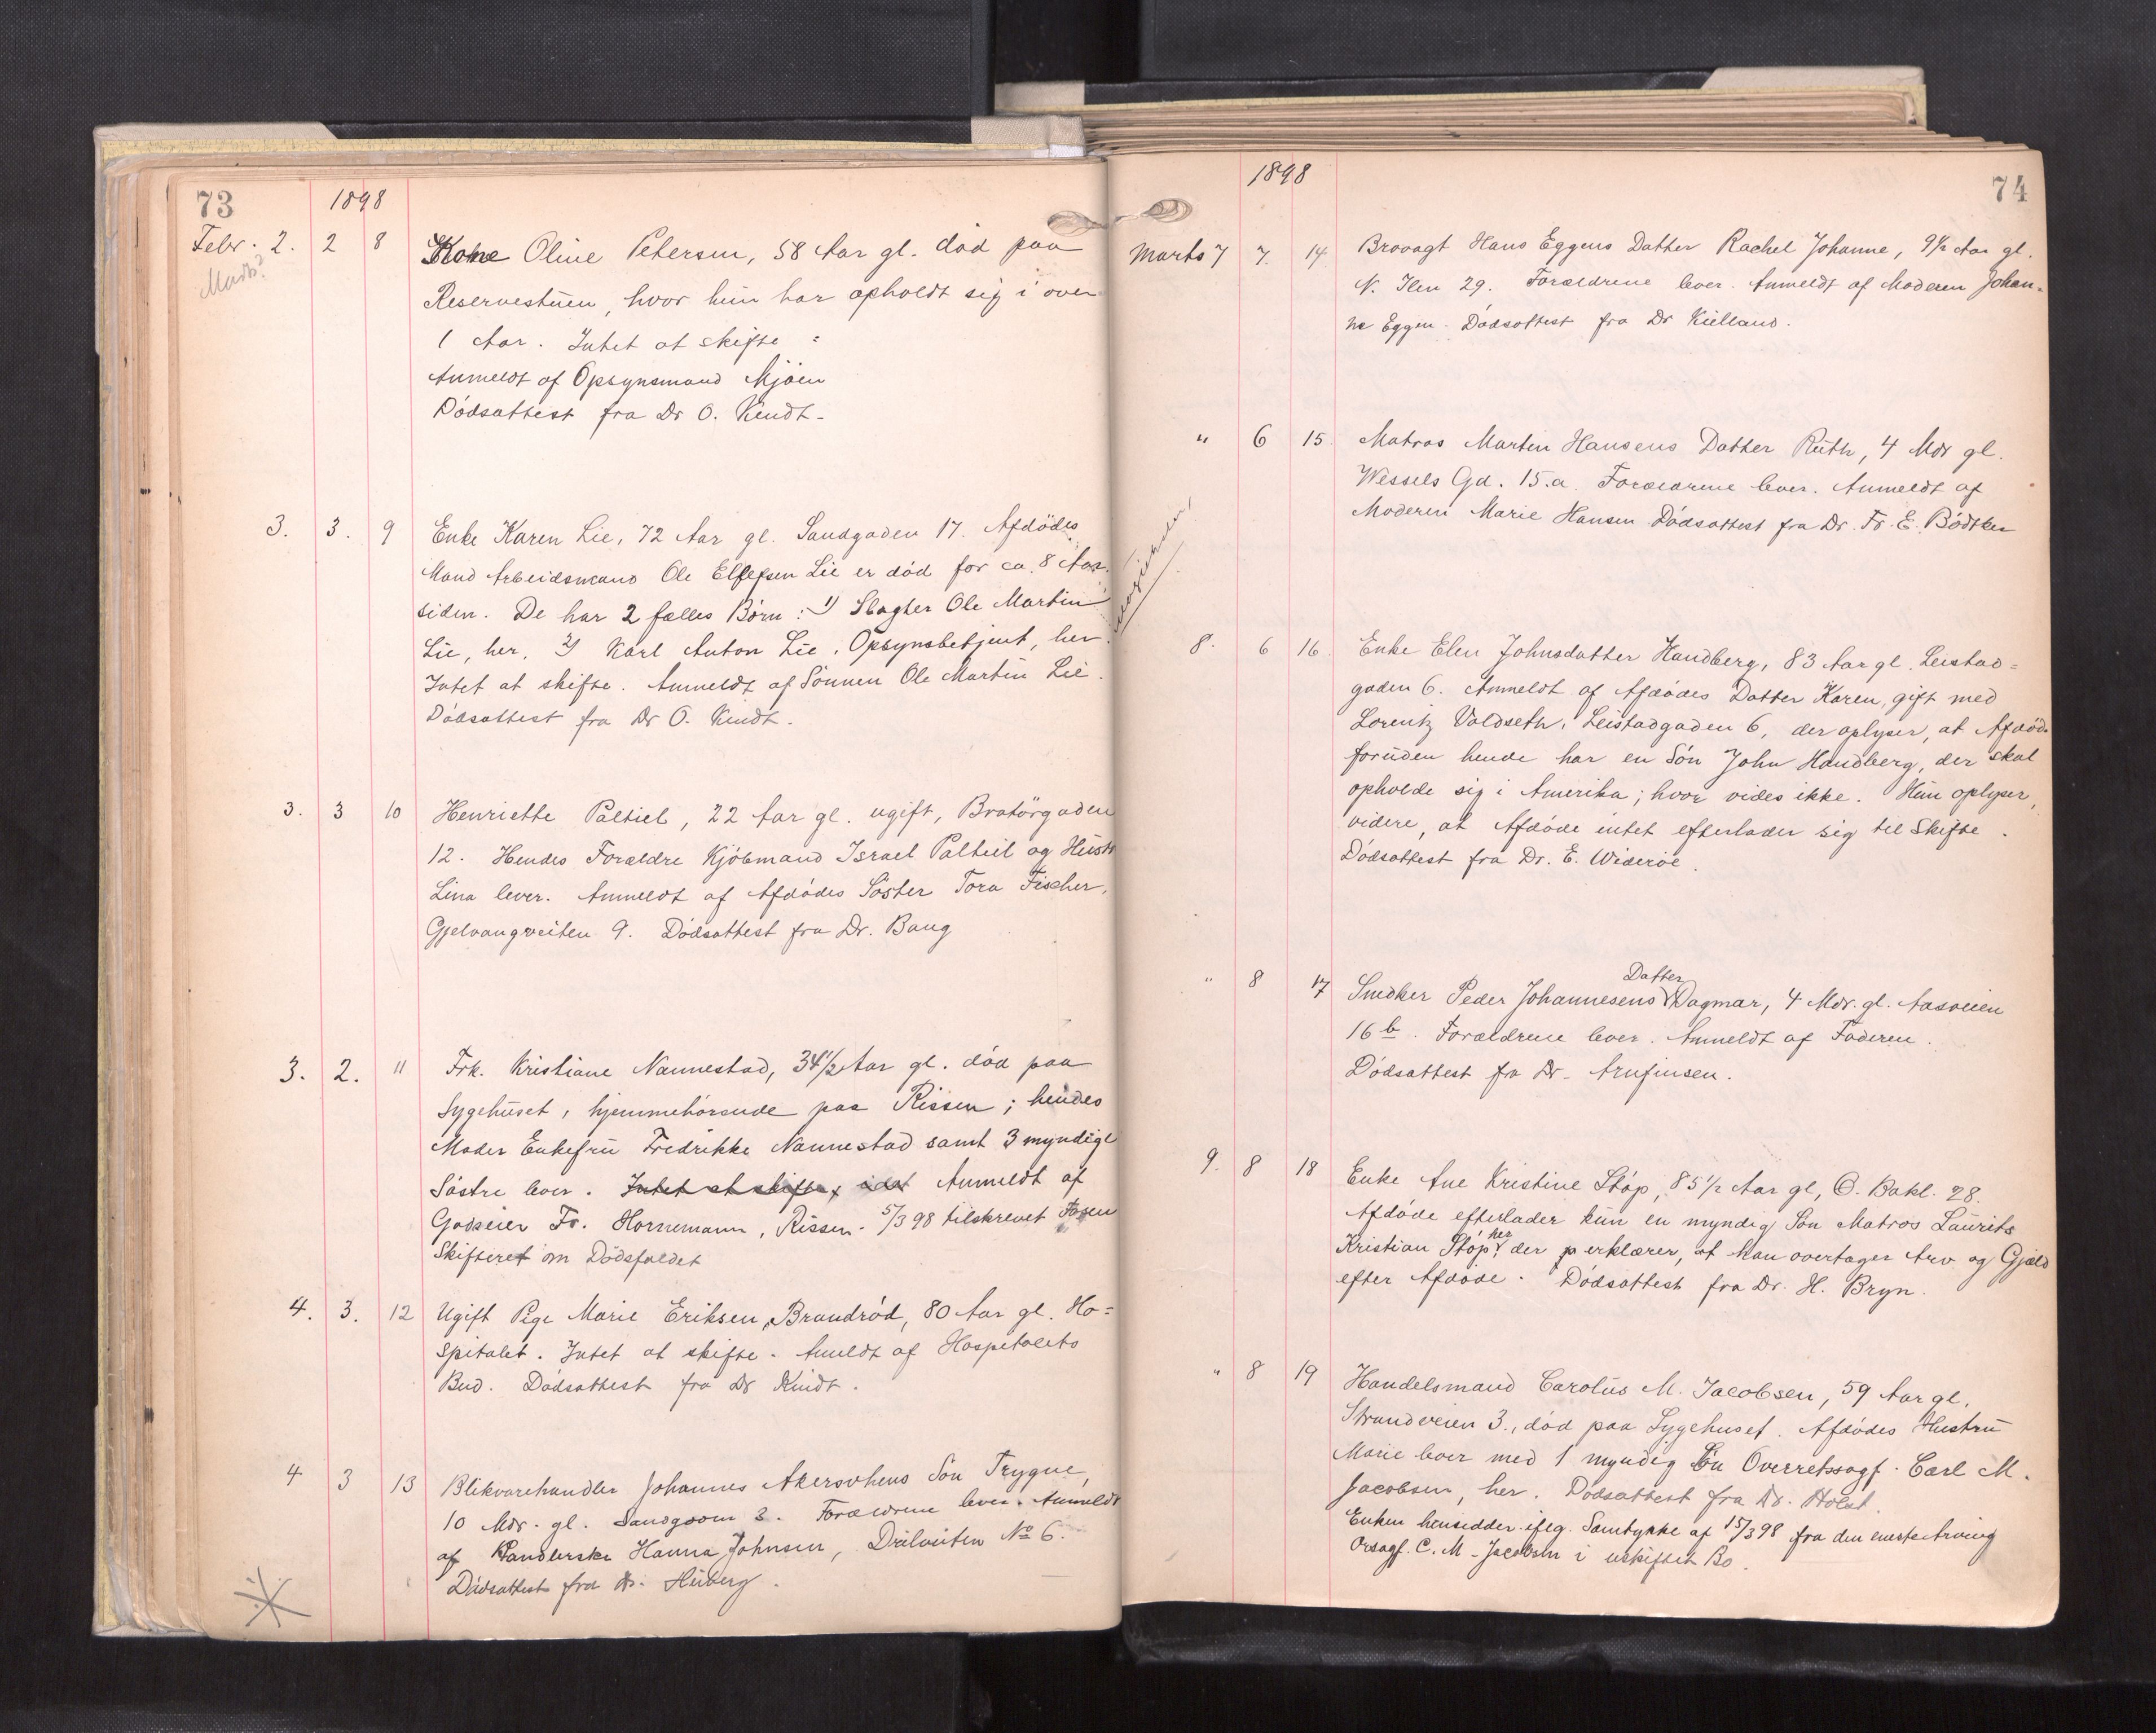 73
1898
Febr. 2. 2 8 Kone Oline Petersen, 58 Aar gl. död paa
Marts?
Reservestuen, hvor hun har opholdt sig i over
1 Aar. Intet at skifte
Anmeldt af Opsynsmand Mjöen
Dödsattest fra Dr O. Kindt.
3. 3. 9 Enke Karen Lie, 72 Aar gl. Sandgaden 17. Afdödes
Mand Arbeidsmand Ole Ellefsen Lie er död for ca. 8 Aar
siden. De har 2 fælles Börn: 1) Slagter Ole Martin
Lie, her, 2) Karl Anton Lie, Opsynsbetjent, her.
Intet at skifte. Anmeldt af Sönnen Ole Martin Lie.
Dödsattest fra Dr O. Kindt.
3. 3 10 Henriette Paltiel, 22 Aar gl. ugift, Bratörgaden
12. Hendes Forældre Kjöbmand Israel Paltiel og Hustr
Lina lever. Anmeldt af Afdödes Söster Tora Fischer,
Gjelvangveiten 9. Dödsattest fra Dr. Bang
3. 2. 11 Frk. Kristiane Nannestad, 34 1/2 Aar gl. död paa
Sygehuset, hjemmehörende paa Rissen; hendes
Moder Enkefru Fredrikke Nannestad samt 3 myndige
Söstre lever. Intet at skifte, idet Anmeldt af
Godseier Fr. Hornemann, Rissen. 5/3 98 tilskrevet Fosen
Skifteret om Dödsfaldet
4. 3. 12 Ugift Pige Marie Eriksen Brandröd, 80 Aar gl. Ho=
spitalet. Intet at skifte. Anmeldt af Hospitalets
Bud. Dödsattest fra Dr Kindt.
4 3 13 Blikvarehandler Johannes Akersvhens Sön Trygve,
10 Mdr. gl. Sandgaden 3. Forældrene lever. Anmeldt
af Handlerske Hanna Johnsen, Dreilveiten No 6.
Dödsattest fra Dr. Huberg.
1898
74
Marts 7 7. 14 Brovagt Hans Eggens Datter Rachel Johanne, 9 1/2 Aar gl.
N. Ilen 29. Forældrene lever. Anmeldt af Moderen Johan=
ne Eggen. Dödsattest fra Dr Kielland.
" 6 15 Matros Martin Hansens Datter Ruth, 4 Mdr gl.
Wessels Gd. 15.a. Forældrene lever. Anmeldt af
Moderen Marie Hansen. Dödsattest fra Dr. Fr. E. Bödtker
8. 6 16 Enke Elen Johnsdatter Handberg, 83 Aar gl. Leistad=
gaden 6. Anmeldt af Afdödes Datter Karen, gift med
Lorentz Voldseth, Leistadgaden 6, der oplyser, at Afdöde
foruden hende har en Sön John Handberg, der skal
opholde sig i Amerika; hvor vides ikke. Hun oplyser,
videre, at Afdöde intet efterlader sig til Skifte.
Dödsattest fra Dr. E. Wideröe.
" 8 17 Snedker Peder Johannesens Datter Dagmar, 4 Mdr. gl. Aasveien
16 b. Forældrene lever. Anmeldt af Faderen.
Dödsattest fra Dr. Arnfinsen.
9. 8 18 Enke Ane Kristine Stöp, 85 1/2 Aar gl, Ö. Bakl. 28.
Afdöde efterlader kun en myndig Sön Matros Laurits
Kristian Stöp, her der erklærer, at han overtager Arv og Gjæld
efter Afdöde. Dödsattest fra Dr. H. Bryn.
" 8 19 Handelsmand Carolus M. Jacobsen, 59 Aar gl.
Strandveien 3., död paa Sygehuset. Afdödes Hustru
Marie lever med 1 myndig Sön Overretssagf. Carl M.
Jacobsen, her. Dödsattest fra Dr. Holst.
Enken hensidder iflg. Samtykke af 15/3 98 fra den eneste Arving
Orsagf. C. M. Jacobsen i uskiftet Bo.